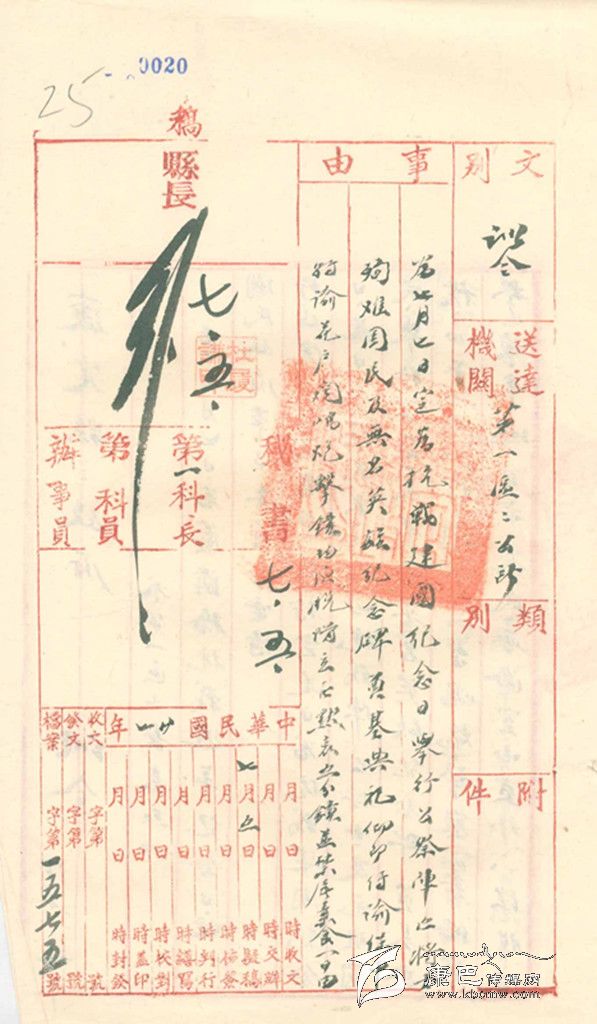 0020
25
稿
文別
訓令
送達機關
第一區區公所
類別
附件
事由
為七月七日定為抗戰建國紀念日舉行公祭陣亡將士
殉難國民及無名英雄紀念碑奠基典禮仰即
縣長
七・五
秘書
七・五
第一科長
第 科員
辦事員
中華民國卅一年
月 日 時收文
月 日 時交辦
七月五日 時擬稿
月 日 時核簽
月 日 時判行
月 日 時繕寫
月 日 時校對
月 日 時蓋印
月 日 時封發
收文 字第 號
發文 字第 號
檔案 字第一五七五號
康巴傳媒網
www.kbcmw.com